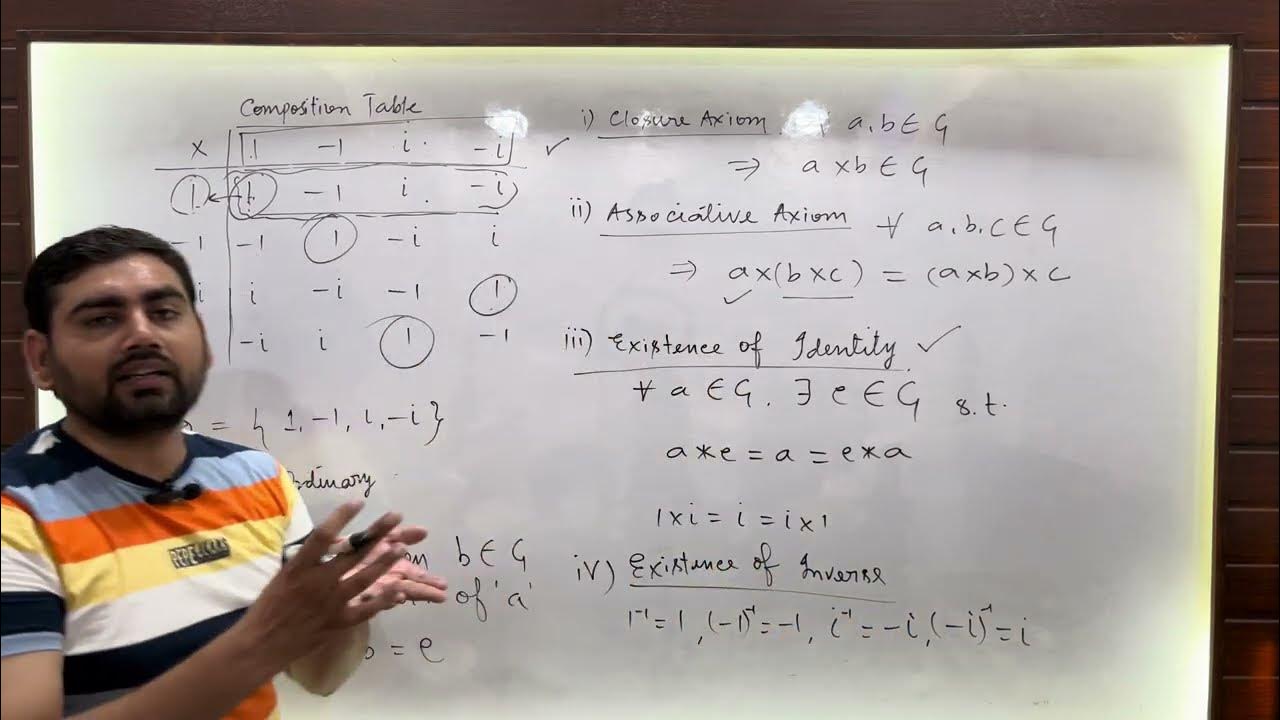 Composition Table
× 1 -1 i -i ✓
1 1 -1 i -i
-1 -1 1 -i i
i i -i -1 1
-i i 1 -1
= { 1, -1, i, -i }
ordinary
b ∈ G
of 'a'
= e
i) Closure Axiom a, b ∈ G
⇒ a × b ∈ G
ii) Associative Axiom ∀ a, b, c ∈ G
⇒ a×(b×c) = (a×b)×c
✓
iii) Existence of Identity ✓
∀ a ∈ G, ∃ e ∈ G s.t.
a * e = a = e * a
1×i = i = i×1
iv) Existence of Inverse
1⁻¹ = 1, (-1)⁻¹ = -1, i⁻¹ = -i, (-i)⁻¹ = i